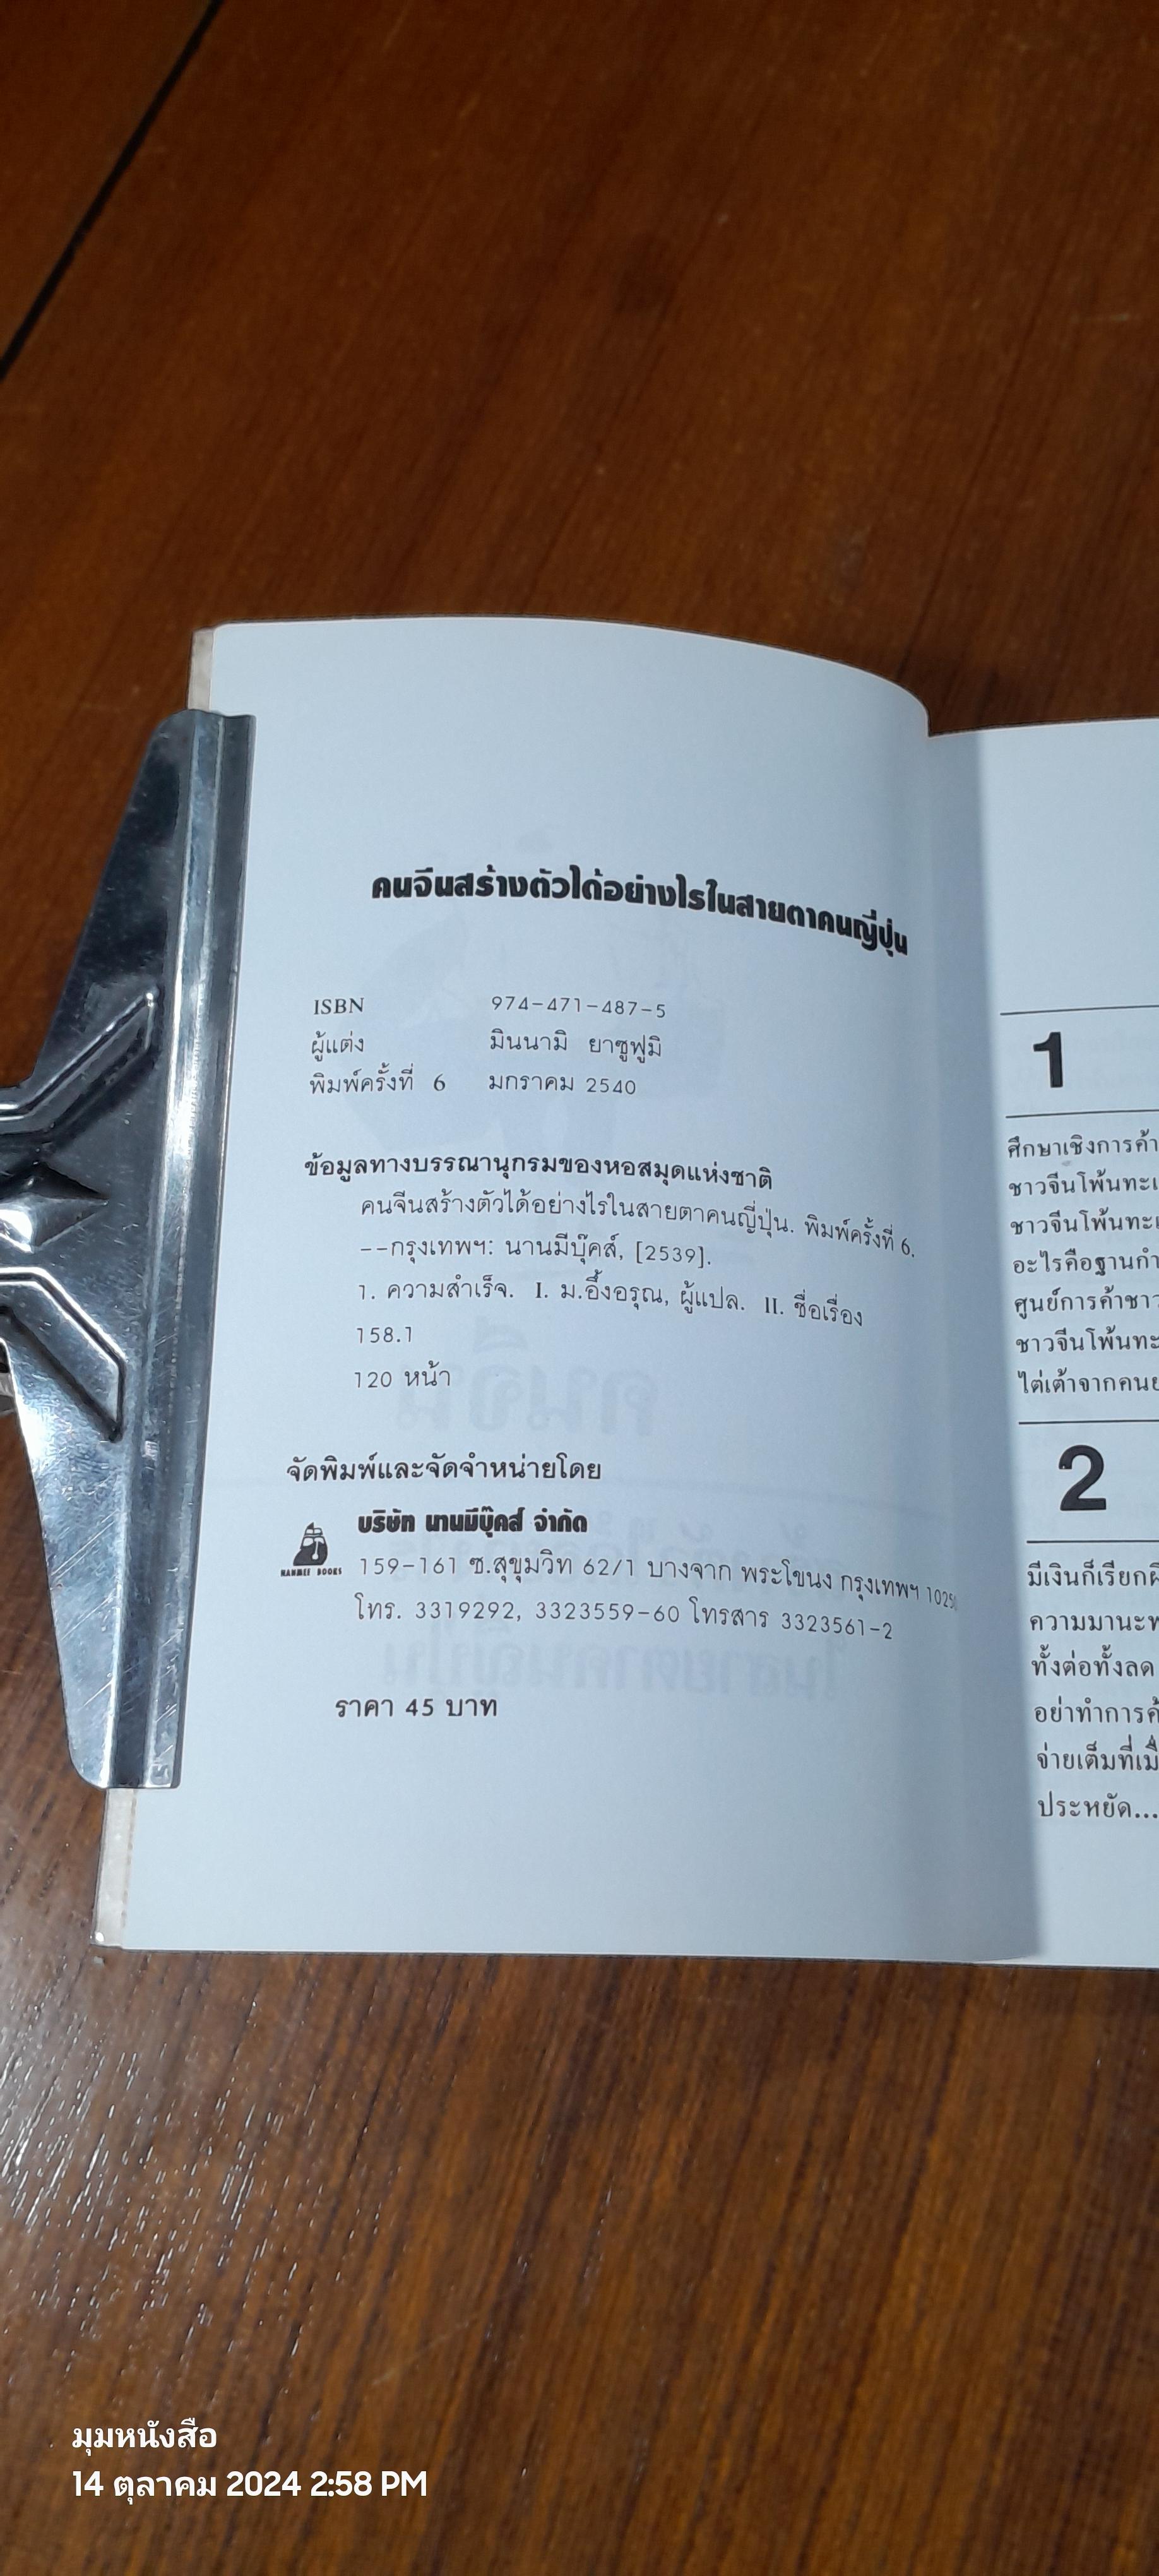 คนจีนสร้างตัวได้อย่างไรในสายตาคนญี่ปุ่น
ISBN 974-471-487-5
ผู้แต่ง มินนามิ ยาซูฟูมิ
พิมพ์ครั้งที่ 6 มกราคม 2540
ข้อมูลทางบรรณานุกรมของหอสมุดแห่งชาติ
คนจีนสร้างตัวได้อย่างไรในสายตาคนญี่ปุ่น. พิมพ์ครั้งที่ 6.
--กรุงเทพฯ: นานมีบุ๊คส์, [2539].
1. ความสำเร็จ. I. ม.อึ้งอรุณ, ผู้แปล. II. ชื่อเรื่อง
158.1
120 หน้า
จัดพิมพ์และจัดจำหน่ายโดย
บริษัท นานมีบุ๊คส์ จำกัด
NANMEE BOOKS
159-161 ซ.สุขุมวิท 62/1 บางจาก พระโขนง กรุงเทพฯ 10250
โทร. 3319292, 3323559-60 โทรสาร 3323561-2
ราคา 45 บาท
1
ศึกษาเชิงการค้า
ชาวจีนโพ้นทะเ
ชาวจีนโพ้นทะเ
อะไรคือฐานกำ
ศูนย์การค้าชาว
ชาวจีนโพ้นทะ
ไต่เต้าจากคนย
2
มีเงินก็เรียกผี
ความมานะพ
ทั้งต่อทั้งลด
อย่าทำการค้
จ่ายเต็มที่เมื่
ประหยัด...
มุมหนังสือ
14 ตุลาคม 2024 2:58 PM